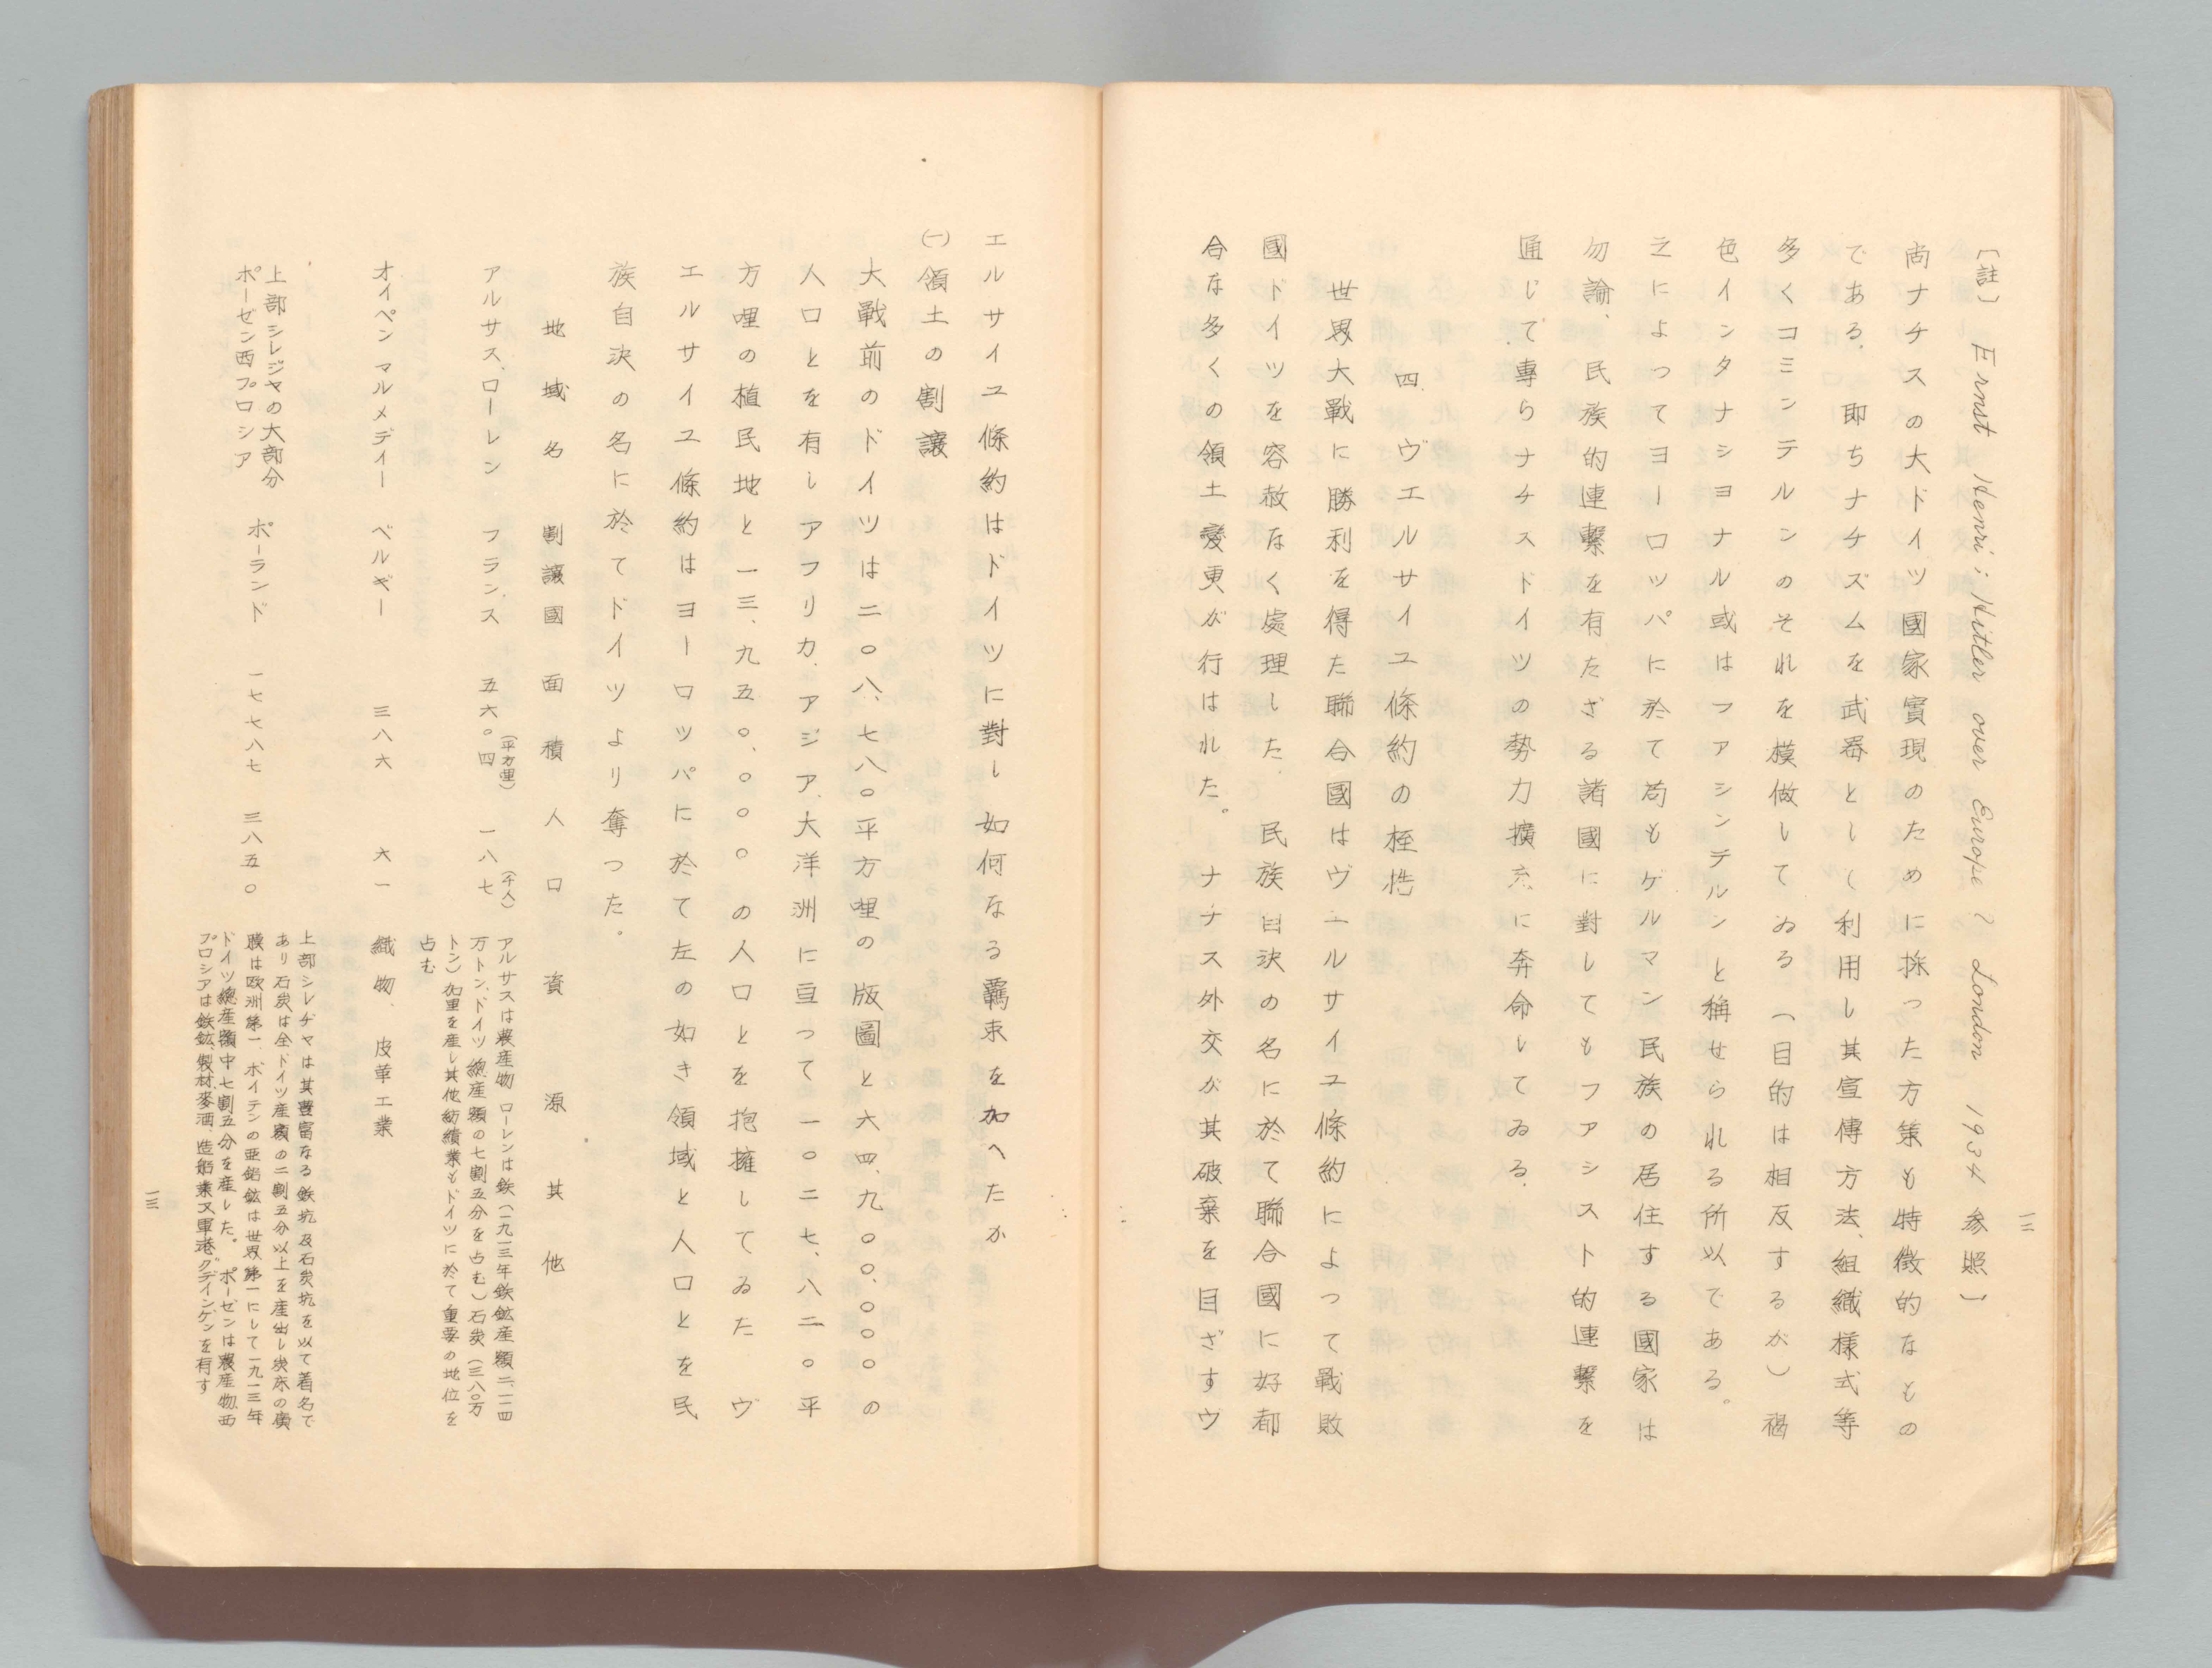 〔註〕 Ernst Henri ; Hitler over Europe ? London 1934 参照〕
尚ナチスの大ドイツ國家實現のために採った方策も特徴的なもの
である．即ちナチズムを武器として利用し其宣傳方法、組織様式等
多くコミンテルンのそれを模做してゐる（目的は相反するが）褐
色インタナショナル或はファシンテルンと稱せられる所以である。
之によってヨーロッパに於て苟もゲルマン民族の居住する國家は
勿論、民族的連繋を有たざる諸國に對してもファシスト的連繋を
通じて専らナチスドイツの勢力擴充に奔命してゐる．
四．ヴエルサイユ條約の桎梏
世界大戰に勝利を得た聯合國はヴエルサイユ條約によって戰敗
國ドイツを容赦なく處理した 民族自決の名に於て聯合國に好都
合な多くの領土變更が行はれた。ナチス外交が其破棄を目ざすヴ
一二
エルサイユ條約はドイツに對し如何なる羈束を加へたか
㈠領土の割讓
大戰前のドイツは二〇八、七八〇平方哩の版圖と六四、九〇〇、〇〇〇の
人口とを有しアフリカ、アジア、大洋洲に亘って一〇二七、八二〇平
方哩の植民地と一三、九五〇、〇〇〇の人口とを抱擁してゐた ヴ
エルサイユ條約はヨーロッパに於て左の如き領域と人口とを民
族自決の名に於てドイツより奪つた。
地域名 割讓國 面積 人口 資源其他
（平方哩） （千人）
アルサス、ローレン フランス 五六〇四 一八七 アルサスは農産物 ローレンは鉄（一九一三年鉄鉱産額二、一四
万トン、ドイツ總産額の七割五分を占む）石炭（三八〇万
トン）加里を産し其他紡績業もドイツに於て重要の地位を
占む
オイペン マルメディー ベルギー 三八六 六一 織物、皮革工業
上部シレジヤの大部分
ポーゼン西プロシア ポーランド 一七七八七 三八五〇
上部シレヂヤは其豊富なる鉄坑及石炭坑を以て着名で
あり石炭は全ドイツ産額の二割五分以上を産出し炭床の廣
膜は欧洲第一、ボイテンの亜鉛鉱は世界第一にして一九一三年
ドイツ總産額中七割五分を産した。ポーゼンは農産物西
プロシアは鉄鉱、製材、麥酒、造船業又軍港グディンゲンを有す
一三